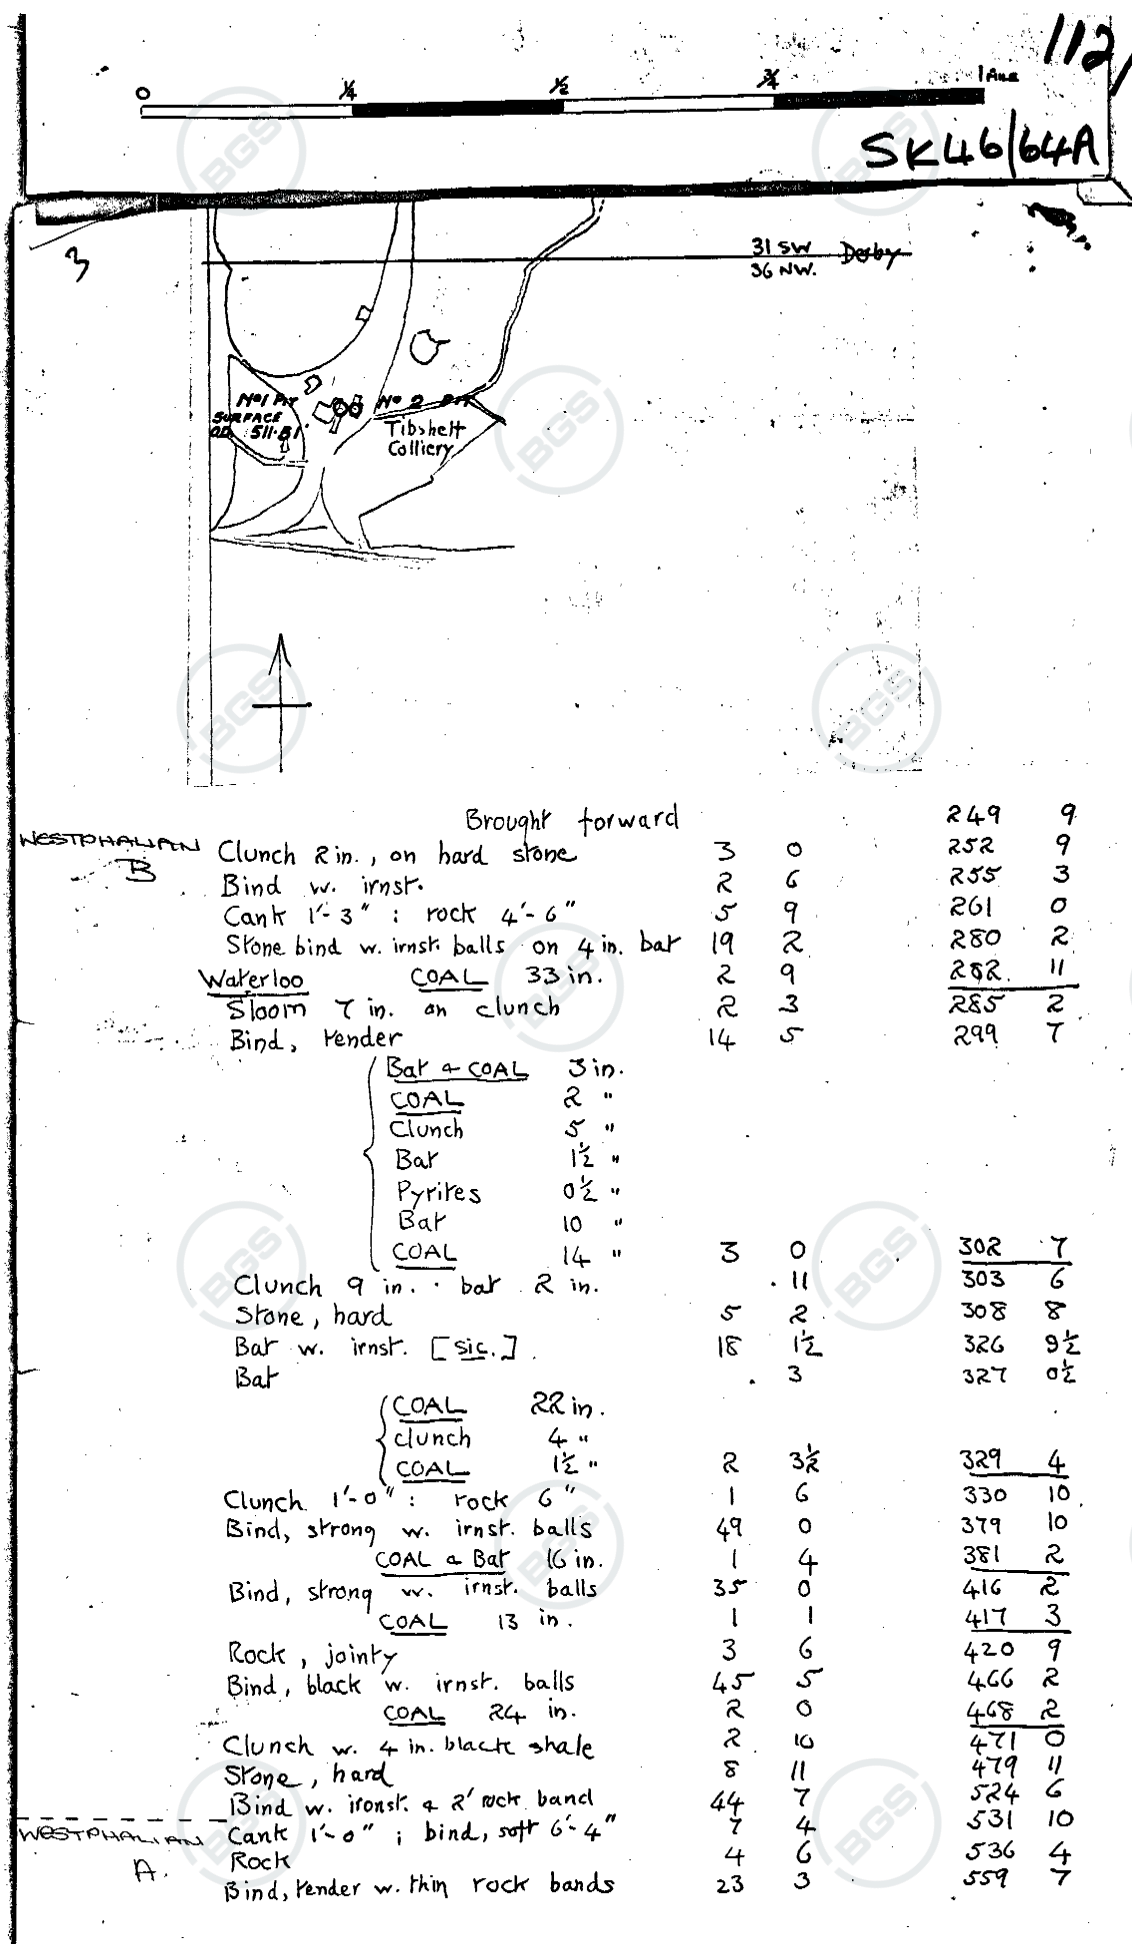 112
0 ¼ ½ ¾ 1 Mile
SK46/64A
3
31 SW Derby
36 NW.
No 1 Pit No 2 Pit
SURFACE
OD 511.81'
Tibshelf
Colliery
Brought forward 249 9
WESTPHALIAN
B
Clunch 2 in., on hard stone 3 0 252 9
Bind w. irnst. 2 6 255 3
Cank 1'-3" : rock 4'-6" 5 9 261 0
Stone bind w. irnst. balls on 4 in. bat 19 2 280 2
Waterloo COAL 33 in. 2 9 282 11
Sloom 7 in. on clunch 2 3 285 2
Bind, tender 14 5 299 7
Bat & COAL 3 in.
COAL 2 "
Clunch 5 "
Bat 1½ "
Pyrites 0½ "
Bat 10 "
COAL 14 " 3 0 302 7
Clunch 9 in. · bat 2 in. 11 303 6
Stone, hard 5 2 308 8
Bat w. irnst. [sic.] 18 1½ 326 9½
Bat 3 327 0½
COAL 22 in.
Clunch 4 "
COAL 1½ " 2 3½ 329 4
Clunch 1'-0" : rock 6" 1 6 330 10
Bind, strong w. irnst. balls 49 0 379 10
COAL & Bat 16 in. 1 4 381 2
Bind, strong w. irnst. balls 35 0 416 2
COAL 13 in. 1 1 417 3
Rock, jointy 3 6 420 9
Bind, black w. irnst. balls 45 5 466 2
COAL 24 in. 2 0 468 2
Clunch w. 4 in. black shale 2 10 471 0
Stone, hard 8 11 479 11
Bind w. ironst. & 2' rock band 44 7 524 6
WESTPHALIAN
A.
Cank 1'-0" ; bind, soft 6'-4" 7 4 531 10
Rock 4 6 536 4
Bind, tender w. thin rock bands 23 3 559 7
BGS